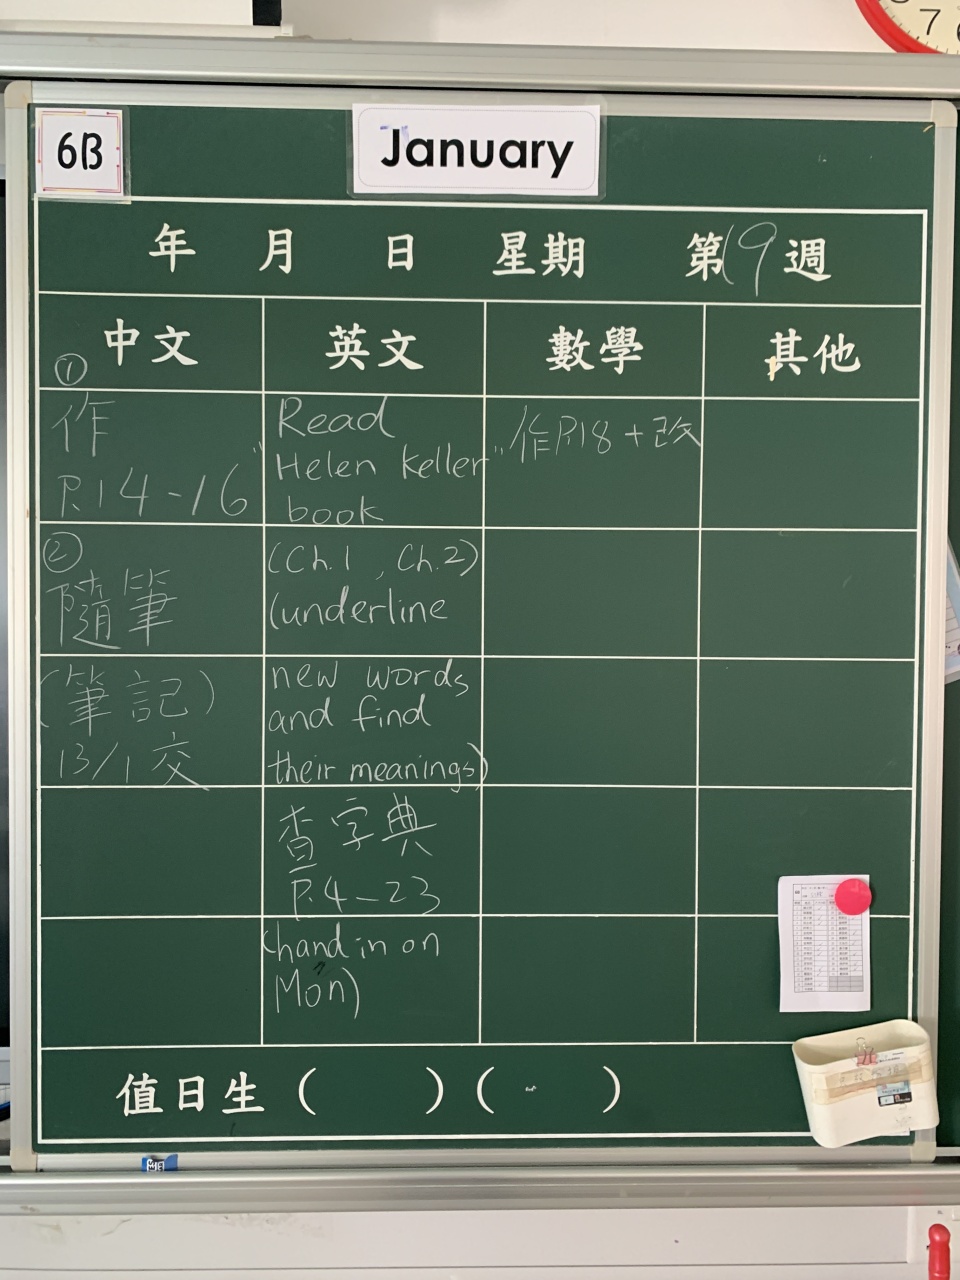 7
6B
January
年 月 日 星期 第19週
中文 英文 數學 其他
①
作
P.14-16
②
隨筆
(筆記)
13/1交
Read
"Helen Keller"
book
(Ch.1, Ch.2)
(underline
new words
and find
their meanings)
查字典
P.4-23
(hand in on
Mon)
作P.18+改
值日生 ( ) ( )